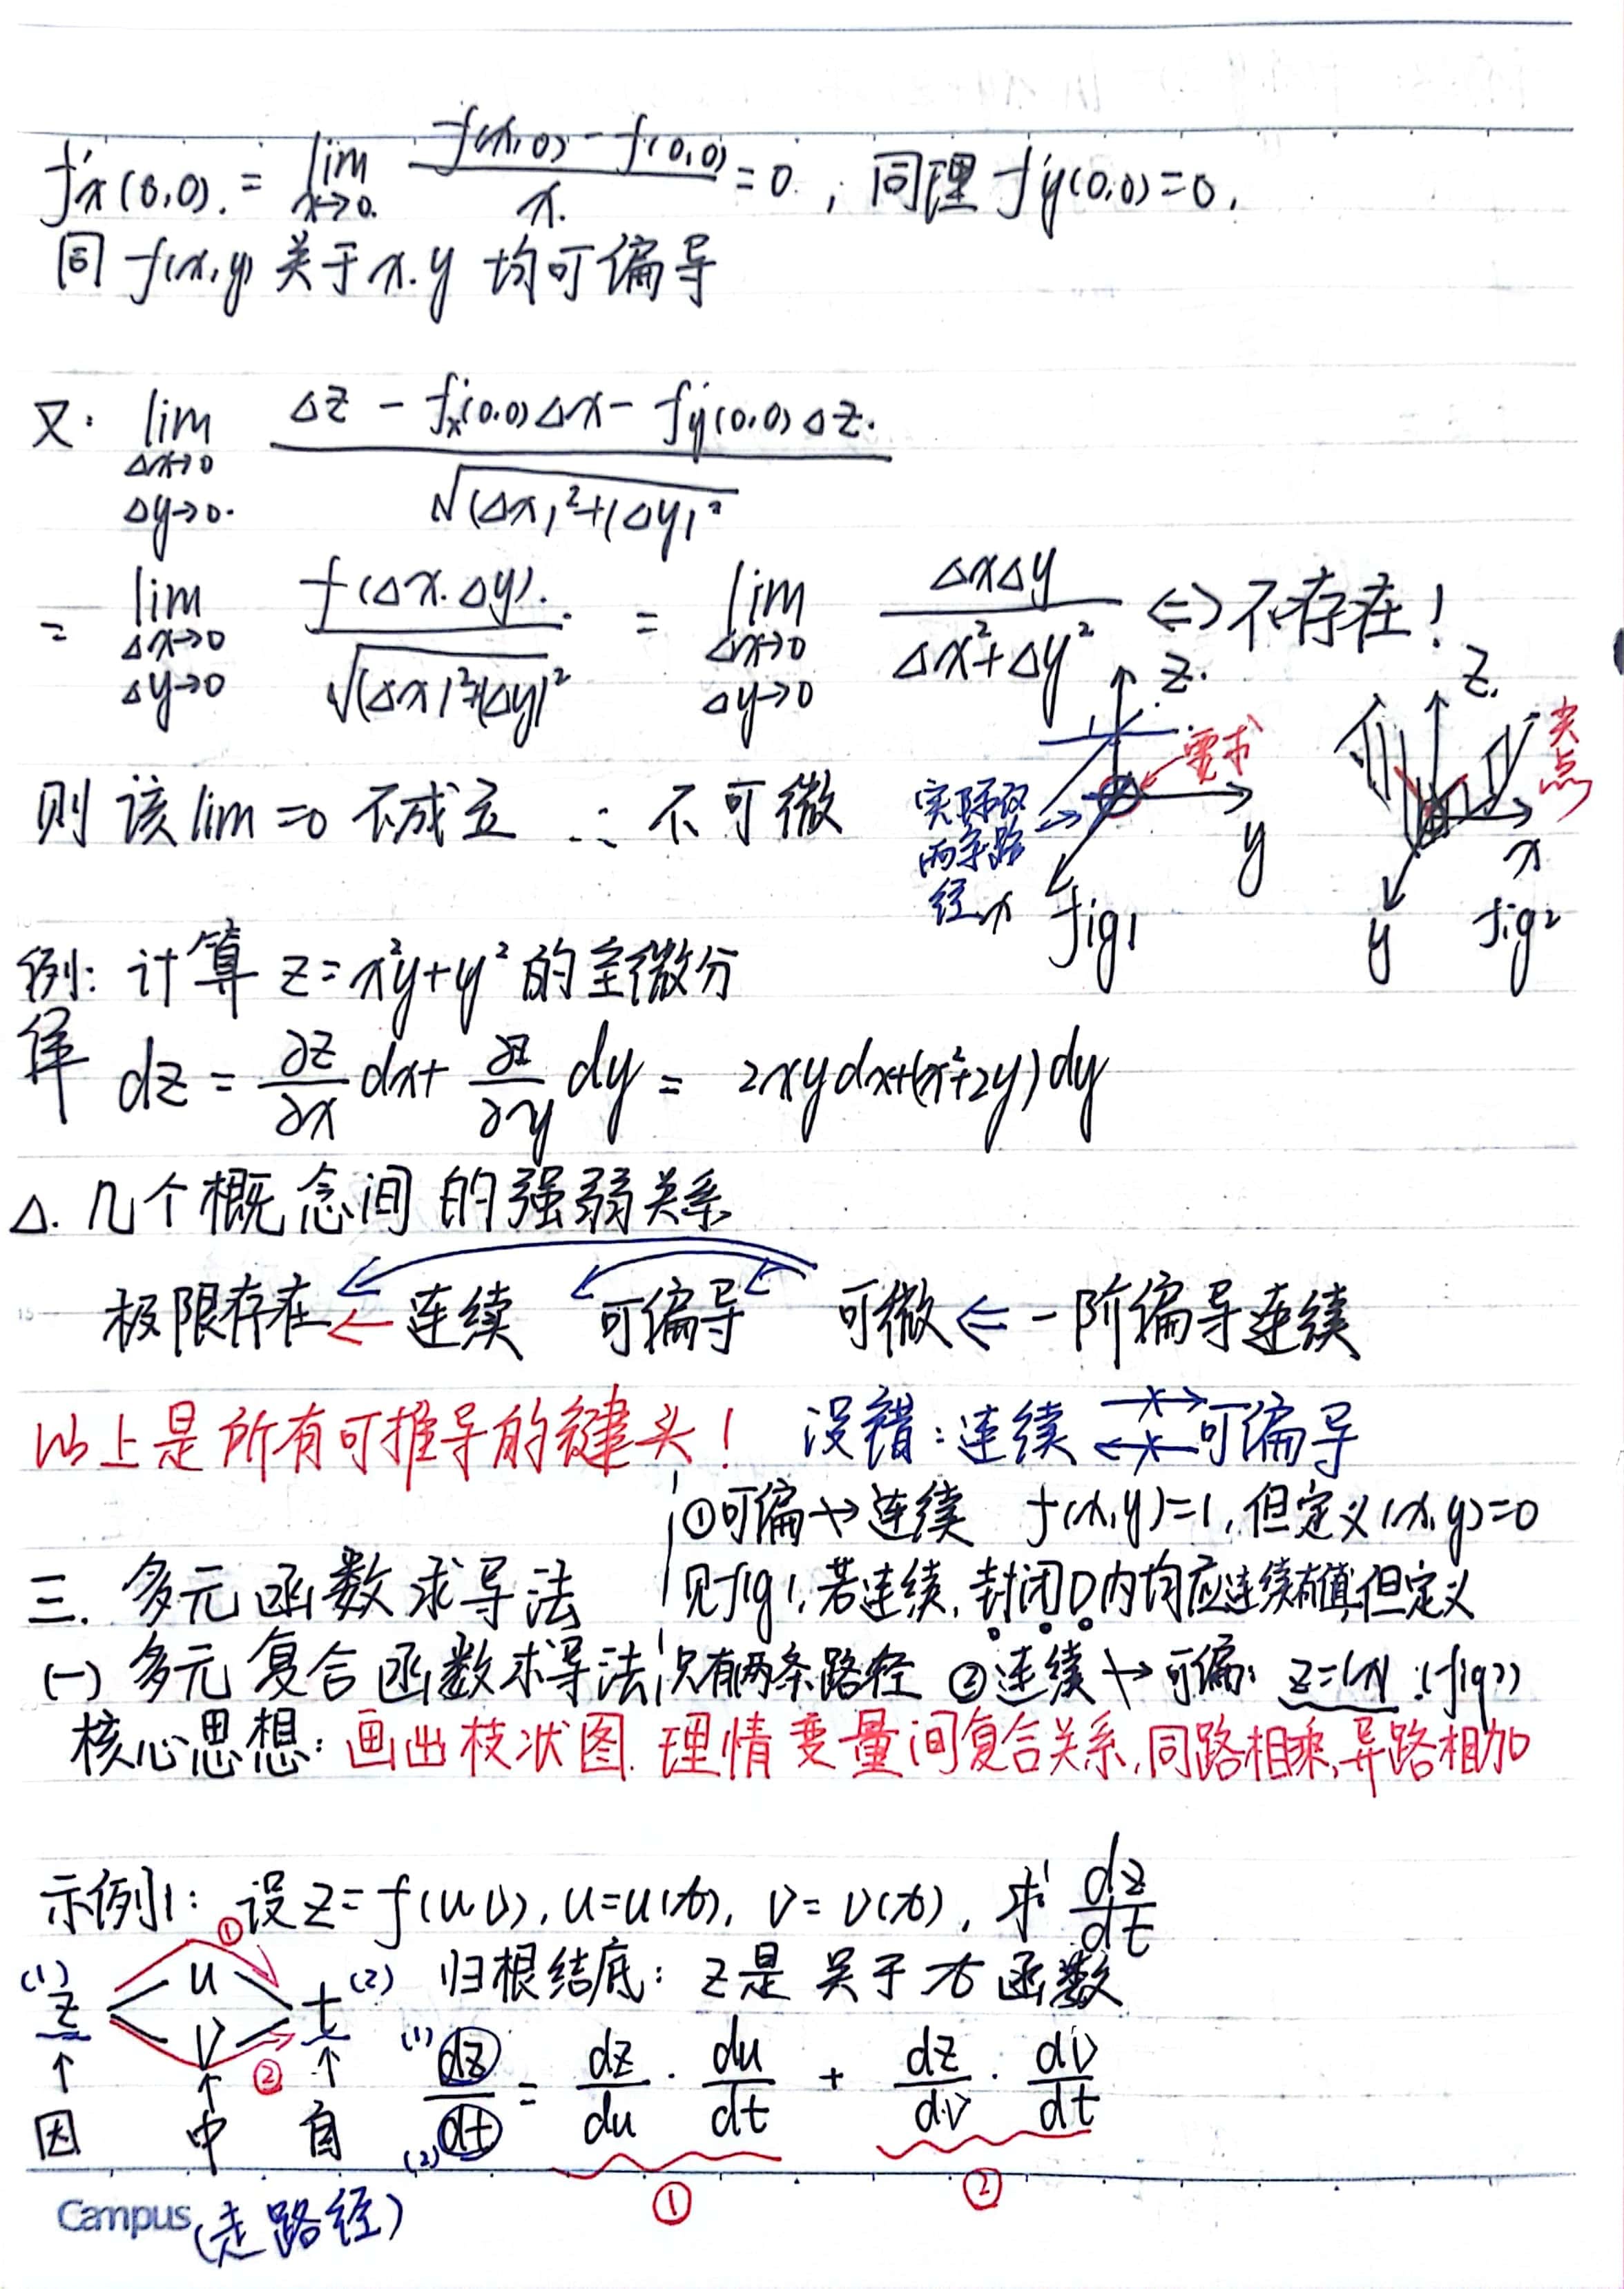 f'x(0,0).=lim x→0. f(x,0)-f(0,0)/x. =0. , 同理 f'y(0,0)=0.
同 f(x,y) 关于 x.y 均可偏导
又: lim Δx→0 Δy→0. Δz - f'x(0,0)Δx - f'y(0,0)Δz. / √(Δx)²+(Δy)²
= lim Δx→0 Δy→0 f(Δx.Δy). / √(Δx)²+(Δy)² = lim Δx→0 Δy→0 ΔxΔy / Δx²+Δy² ⇔ 不存在!
则该lim=0不成立 ∴ 不可微
z.
要求
实际仅
两条路
径
x
y
fig1
z.
尖点
x
y
fig2
例: 计算 z=x²y+y² 的全微分
解 dz = ∂z/∂x dx + ∂z/∂y dy = 2xydx+(x²+2y)dy
Δ. 几个概念间的强弱关系
极限存在 ← 连续 可偏导 可微 ⇐ 一阶偏导连续
以上是所有可推导的键头! 没错:连续 ⇸ ⇷ 可偏导
①可偏↛连续 f(x,y)=1,但定义(x,y)=0
见fig1,若连续,封闭D内均应连续有值但定义
只有两条路径 ②连续↛可偏: z=|x| (fig2)
三. 多元函数求导法
(一) 多元复合函数求导法
核心思想: 画出枝状图.理情变量间复合关系,同路相乘,异路相加
示例1: 设z=f(u,v),u=u(t), v=v(t), 求 dz/dt
归根结底: z是关于t函数
(1) z u v t (2)
① ②
↑ ↑ ↑
因 中 自
(1) (2) dz/dt = dz/du · du/dt + dz/dv · dv/dt
① ②
Campus (走路径)